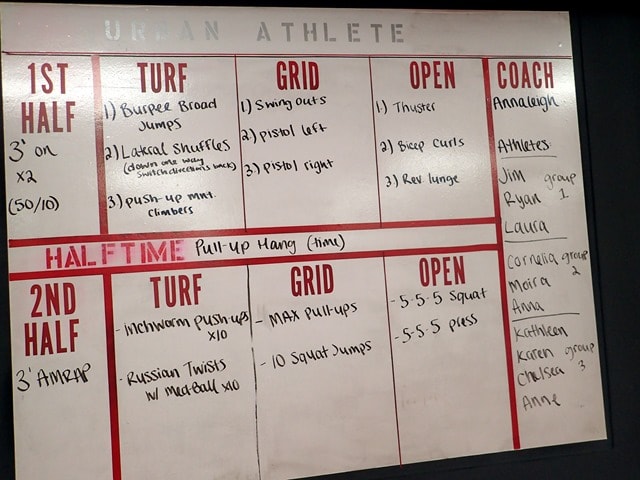 URBAN ATHLETE
1ST
HALF
3' on
x2
(50/10)
TURF
1) Burpee Broad
Jumps
2) Lateral Shuffles
(down one way
switch directions back)
3) push-up mnt.
climbers
GRID
1) Swing outs
2) pistol left
3) Pistol right
OPEN
1) Thuster
2) Bicep Curls
3) Rev lunge
COACH
Annaleigh
Athletes
Jim group
Ryan 1
Laura
Cornelia group
Moira 2
Anna
Kathleen
Karen group
Chelsea 3
Anne
HALFTIME Pull-up Hang (time)
2ND
HALF
3' AMRAP
TURF
- Inchworm Push-ups
x10
- Russian Twists
w/ Meatball x10
GRID
- MAX Pull-ups
- 10 Squat Jumps
OPEN
- 5-5-5 Squat
- 5-5-5 press